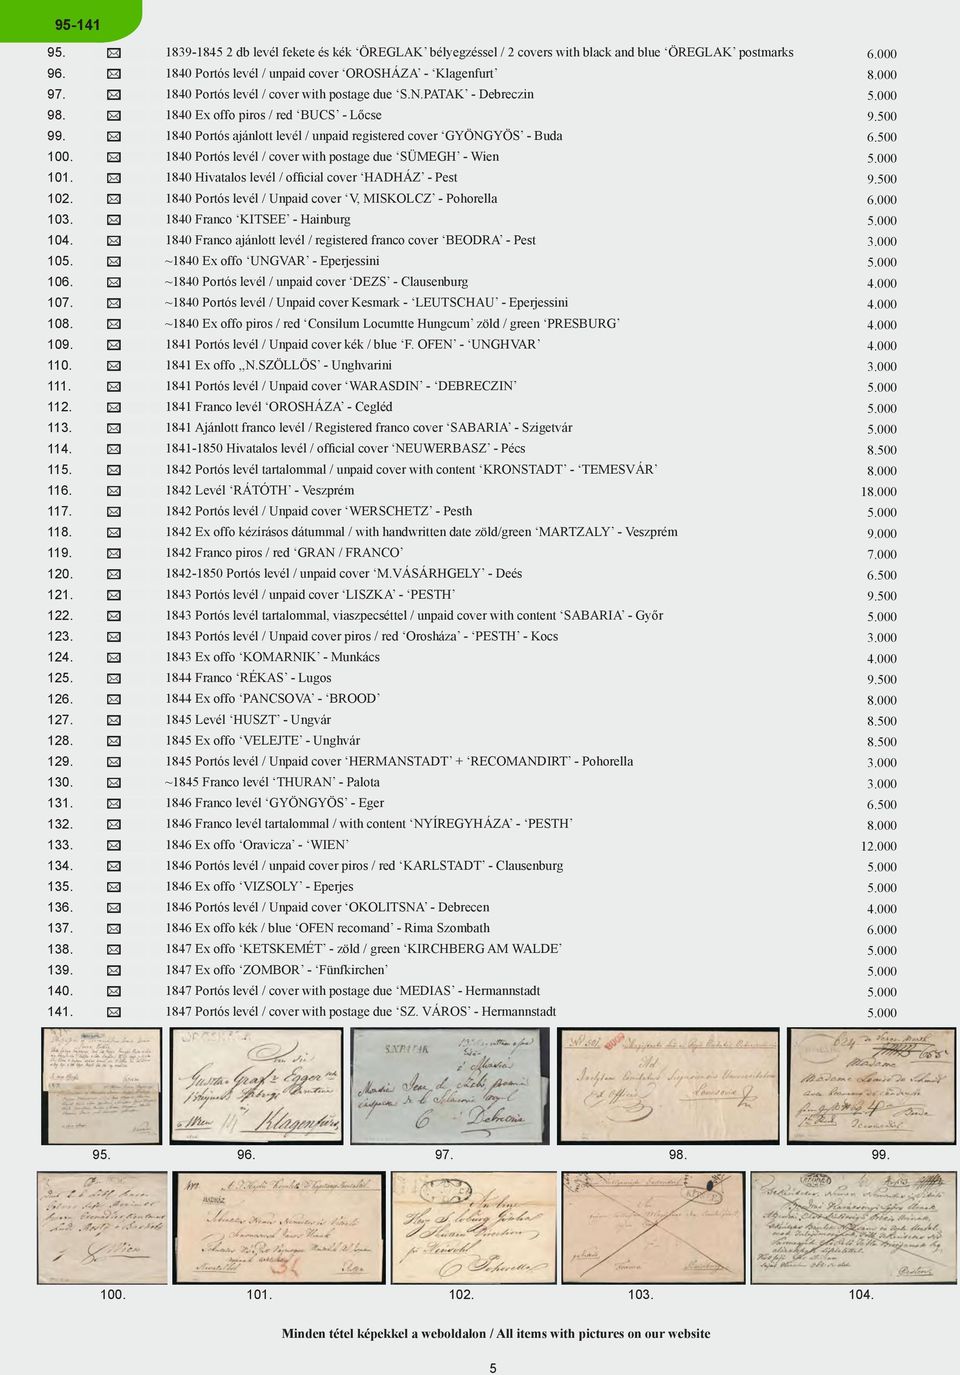 95-141
95. 1839-1845 2 db levél fekete és kék ‘ÖREGLAK’ bélyegzéssel / 2 covers with black and blue ‘ÖREGLAK’ postmarks 6.000
96. 1840 Portós levél / unpaid cover ‘OROSHÁZA’ - ‘Klagenfurt’ 8.000
97. 1840 Portós levél / cover with postage due ‘S.N.PATAK’ - Debreczin 5.000
98. 1840 Ex offo piros / red ‘BUCS’ - Lőcse 9.500
99. 1840 Portós ajánlott levél / unpaid registered cover ‘GYÖNGYÖS’ - Buda 6.500
100. 1840 Portós levél / cover with postage due ‘SÜMEGH’ - Wien 5.000
101. 1840 Hivatalos levél / official cover ‘HADHÁZ’ - Pest 9.500
102. 1840 Portós levél / Unpaid cover ‘V, MISKOLCZ’ - Pohorella 6.000
103. 1840 Franco ‘KITSEE’ - Hainburg 5.000
104. 1840 Franco ajánlott levél / registered franco cover ‘BEODRA’ - Pest 3.000
105. ~1840 Ex offo ‘UNGVAR’ - Eperjessini 5.000
106. ~1840 Portós levél / unpaid cover ‘DEZS’ - Clausenburg 4.000
107. ~1840 Portós levél / Unpaid cover Kesmark - ‘LEUTSCHAU’ - Eperjessini 4.000
108. ~1840 Ex offo piros / red ‘Consilum Locumtte Hungcum’ zöld / green ‘PRESBURG’ 4.000
109. 1841 Portós levél / Unpaid cover kék / blue ‘F. OFEN’ - ‘UNGHVAR’ 4.000
110. 1841 Ex offo „N.SZÖLLÖS’ - Unghvarini 3.000
111. 1841 Portós levél / Unpaid cover ‘WARASDIN’ - ‘DEBRECZIN’ 5.000
112. 1841 Franco levél ‘OROSHÁZA’ - Cegléd 5.000
113. 1841 Ajánlott franco levél / Registered franco cover ‘SABARIA’ - Szigetvár 5.000
114. 1841-1850 Hivatalos levél / official cover ‘NEUWERBASZ’ - Pécs 8.500
115. 1842 Portós levél tartalommal / unpaid cover with content ‘KRONSTADT’ - ‘TEMESVÁR’ 8.000
116. 1842 Levél ‘RÁTÓTH’ - Veszprém 18.000
117. 1842 Portós levél / Unpaid cover ‘WERSCHETZ’ - Pesth 5.000
118. 1842 Ex offo kézírásos dátummal / with handwritten date zöld/green ‘MARTZALY’ - Veszprém 9.000
119. 1842 Franco piros / red ‘GRAN / FRANCO’ 7.000
120. 1842-1850 Portós levél / unpaid cover ‘M.VÁSÁRHGELY’ - Deés 6.500
121. 1843 Portós levél / unpaid cover ‘LISZKA’ - ‘PESTH’ 9.500
122. 1843 Portós levél tartalommal, viaszpecséttel / unpaid cover with content ‘SABARIA’ - Győr 5.000
123. 1843 Portós levél / Unpaid cover piros / red ‘Orosháza’ - ‘PESTH’ - Kocs 3.000
124. 1843 Ex offo ‘KOMARNIK’ - Munkács 4.000
125. 1844 Franco ‘RÉKAS’ - Lugos 9.500
126. 1844 Ex offo ‘PANCSOVA’ - ‘BROOD’ 8.000
127. 1845 Levél ‘HUSZT’ - Ungvár 8.500
128. 1845 Ex offo ‘VELEJTE’ - Unghvár 8.500
129. 1845 Portós levél / Unpaid cover ‘HERMANSTADT’ + ‘RECOMANDIRT’ - Pohorella 3.000
130. ~1845 Franco levél ‘THURAN’ - Palota 3.000
131. 1846 Franco levél ‘GYÖNGYÖS’ - Eger 6.500
132. 1846 Franco levél tartalommal / with content ‘NYÍREGYHÁZA’ - ‘PESTH’ 8.000
133. 1846 Ex offo ‘Oravicza’ - ‘WIEN’ 12.000
134. 1846 Portós levél / unpaid cover piros / red ‘KARLSTADT’ - Clausenburg 5.000
135. 1846 Ex offo ‘VIZSOLY’ - Eperjes 5.000
136. 1846 Portós levél / Unpaid cover ‘OKOLITSNA’ - Debrecen 4.000
137. 1846 Ex offo kék / blue ‘OFEN recomand’ - Rima Szombath 6.000
138. 1847 Ex offo ‘KETSKEMÉT’ - zöld / green ‘KIRCHBERG AM WALDE’ 5.000
139. 1847 Ex offo ‘ZOMBOR’ - ‘Fünfkirchen’ 5.000
140. 1847 Portós levél / cover with postage due ‘MEDIAS’ - Hermannstadt 5.000
141. 1847 Portós levél / cover with postage due ‘SZ. VÁROS’ - Hermannstadt 5.000
Klagenfurt
S.N.PATAK
Debreczin
95. 96. 97. 98. 99.
Wien
HADHÁZ
100. 101. 102. 103. 104.
Minden tétel képekkel a weboldalon / All items with pictures on our website
5